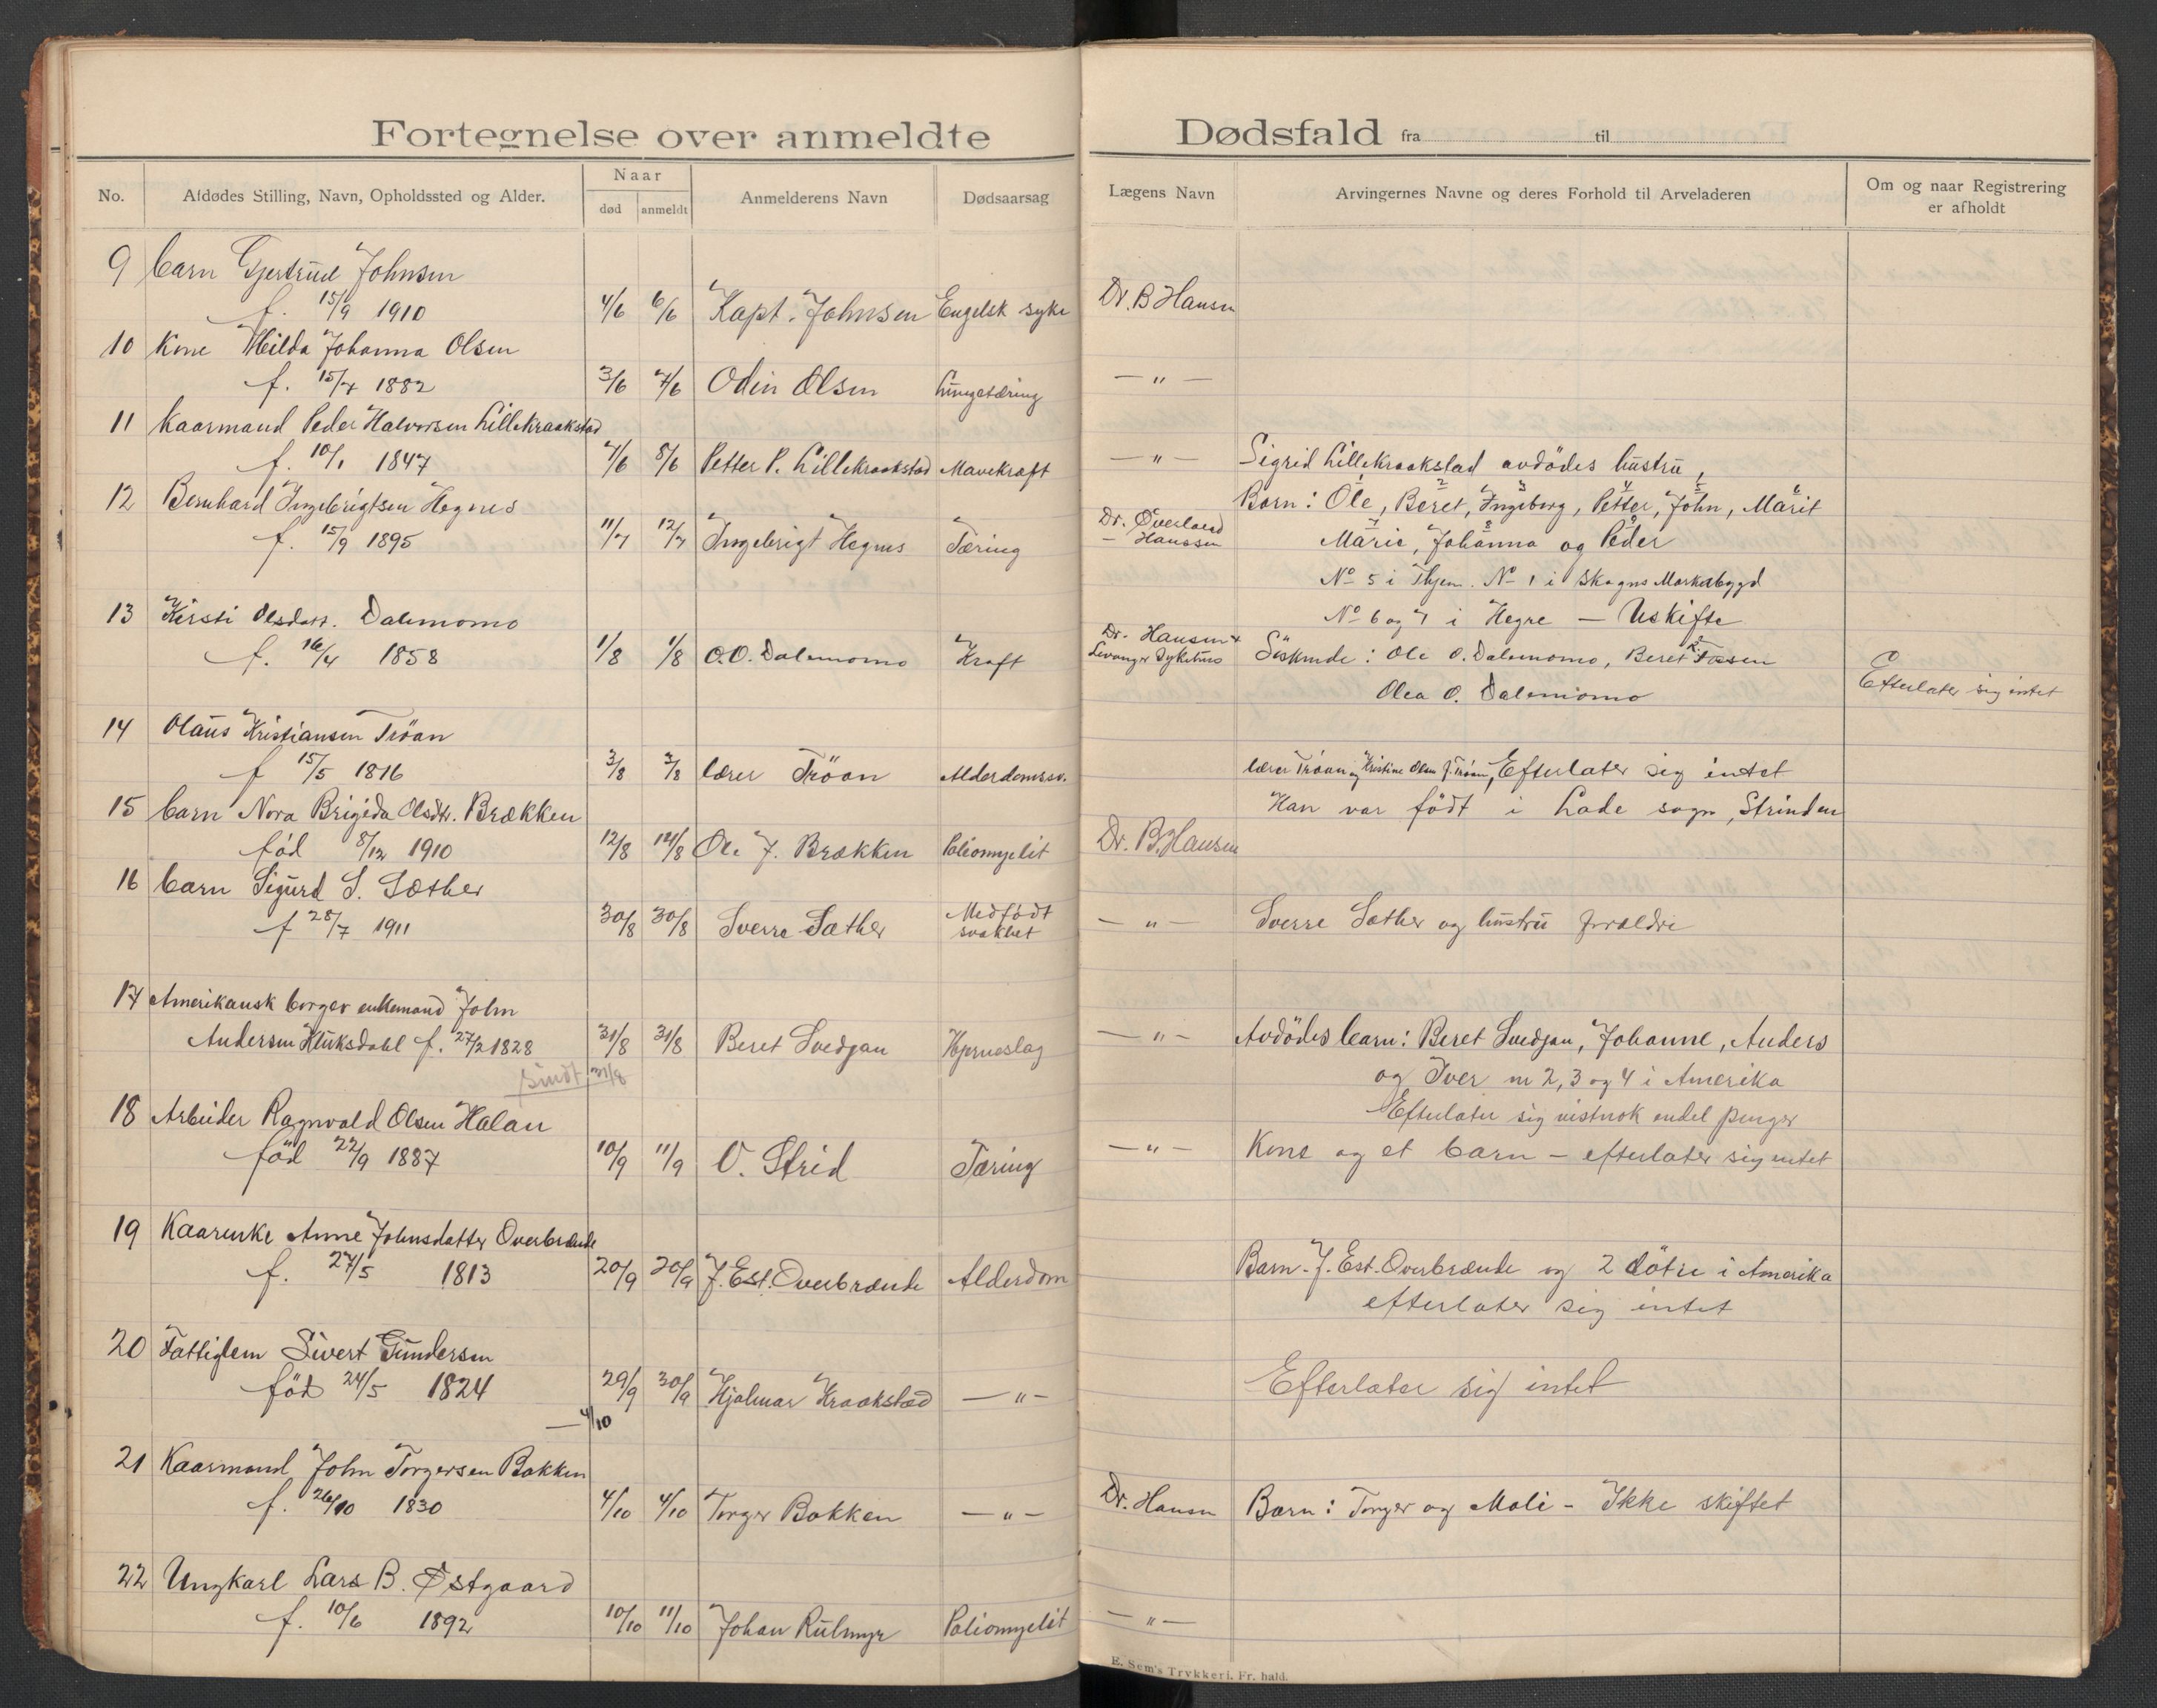 Fortegnelse over anmeldte Dødsfald fra til
No. Afdødes Stilling, Navn, Opholdssted og Alder. Naar død anmeldt Anmelderens Navn Dødsaarsag Lægens Navn Arvingernes Navne og deres Forhold til Arveladeren Om og naar Registrering er afholdt
9 barn Gjertrud Johnsen
f. 15/9 1910 4/6 6/6 Kapt. Johnsen Engelsk syke Dr. B Hansen
10 Kone Hilda Johanna Olsen
f. 15/7 1882 3/6 7/6 Odin Olsen Lungetæring — " —
11 Kaarmand Peder Halvorsen Lillekraakstad
f. 10/1 1847 7/6 8/6 Petter P. Lillekraakstad Mavekraft — " — Sigrid Lillekraakstad avdödes hustru,
12 Bernhard Ingebrigtsen Hegnes Barn: Ole, Beret, Ingeborg, Petter, John, Marit
1 2 3 4 5 6
f. 15/9 1895 11/7 12/7 Ingebrigt Hegnes Tæring Dr. Øverland — Hanssen Marie, Johanna og Peder
7 8 9
No 5 i Thjem. No 1 i Skogns Markabygd
13 Kirsti Olsdatt. Dalemomo No 6 og 7 i Hegre — Uskifte
f. 16/4 1858 1/8 1/8 O.O. Dalemomo Kraft Dr. Hansen + Levanger Sykehus Söskende: Ole O. Dalemomo, Beret Fossen
Olea O. Dalemomo Efterlater sig intet
14 Olaus Kristiansen Tröan
f 15/5 1816 3/8 3/8 lærer Tröan Alderdomssv. lærer Tröan og Kristine Olsen f. Tröan, Efterlater sig intet
15 barn Nora Brigida Olsdtr. Brækken Han var födt i Lade sogn, Strinden
föd 8/12 1910 12/8 14/8 Ole J. Brækken Poliomyelit Dr. B. Hansen
16 barn Sigurd S. Sæther
f 28/7 1911 30/8 30/8 Sverre Sæther Medfödt svakhet — " — Sverre Sæther og hustru forældre
17 Amerikansk borger enkemand John
Andersen Kluksdahl f. 27/2 1828 31/8 31/8 Beret Svedjan Hjerneslag — " — Avdödes barn: Beret Svedjan, Johanne, Anders
sendt 31/8 og Iver nr 2, 3 og 4 i Amerika
Efterlater sig vistnok endel penger
18 Arbeider Ragnvald Olsen Halan
föd 22/9 1887 10/9 11/9 O. Strid Tæring — " — Kone og et barn — efterlater sig intet
19 Kaarenke Anne Johnsdatter Overbrænde
f. 27/5 1813 20/9 20/9 J. Est. Overbrænde Alderdom Barn - J. Est. Overbrænde og 2 døtre i Amerika
efterlater sig intet
20 Fattiglem Sivert Gundersen
föd 24/5 1824 29/9 30/9 Hjalmar Kraakstad — " — Efterlater sig intet
— 4/10
21 Kaarmand John Torgersen Bakken
f. 26/10 1830 4/10 4/10 Torger Bakken — " — Dr. Hansen Barn: Torger og Mali - Ikke skiftet
22 Ungkarl Lars B. Østgaard
f. 10/6 1892 10/10 11/10 Johan Rulmyr Poliomyelit — " —
E. Sem's Trykkeri. Fr. hald.